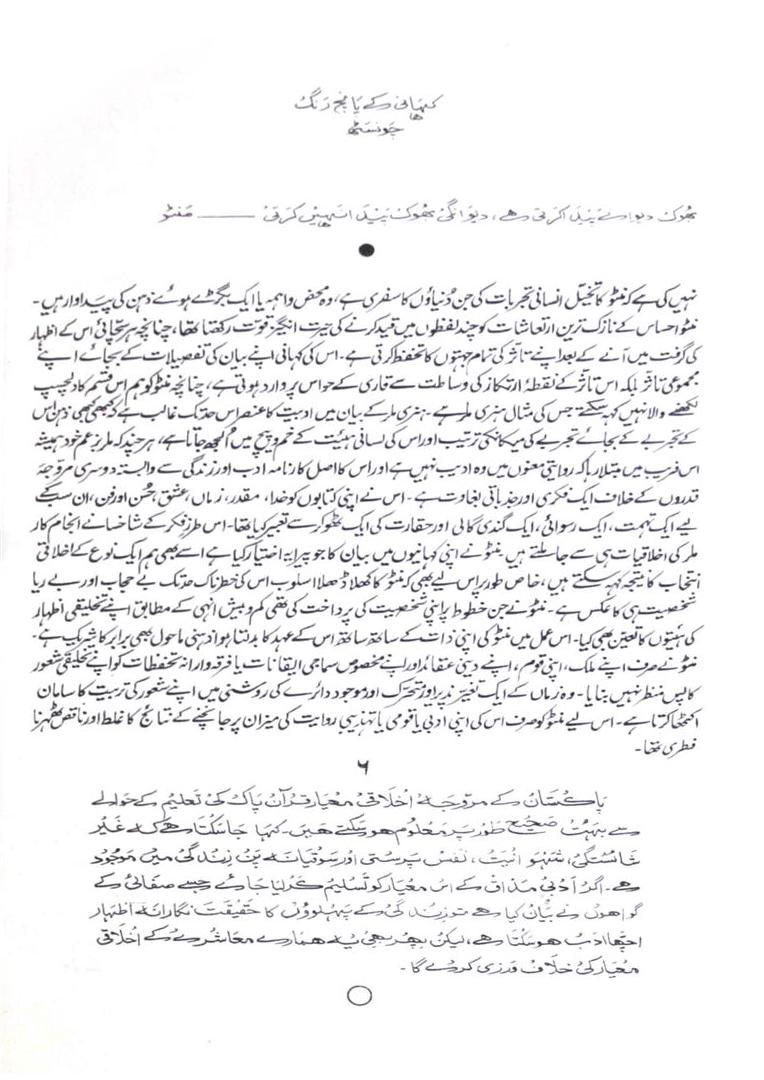 کہانی کے پانچ رنگ
چونسٹھ
بھوک دیوانے پیدا کرتی ہے، دیوانگی بھوک پیدا نہیں کرتی ——— منٹو
نہیں کی ہے کہ منٹو کا تخیل انسانی تجربات کی جن دنیاؤں کا سفری ہے، وہ محض واہمہ یا ایک بگڑے ہوئے ذہن کی پیداوار ہیں۔
منٹو احساس کے نازک ترین ارتعاشات کو چند لفظوں میں قید کرنے کی حیرت انگیز قوت رکھتا تھا، چنانچہ ہر سچائی اس کے اظہار
کی گرفت میں آنے کے بعد اپنے تاثر کی تمام جہتوں کا تحفظ کرتی ہے۔ اس کی کہانی اپنے بیان کی تفصیلات کے بجائے اپنے
مجموعی تاثر بلکہ اس تاثر کے نقطۂ ارتکاز کی وساطت سے قاری کے حواس پر وارد ہوتی ہے، چنانچہ منٹو کو ہم اس قسم کا دلچسپ
لکھنے والا نہیں کہہ سکتے جس کی مثال ہنری ملر ہے۔ ہنری ملر کے بیان میں ادبیت کا عنصر اس حد تک غالب ہے کہ کبھی کبھی ذہن اس
کے تجربے کے بجائے تجربے کی میکانکی ترتیب اور اس کی لسانی ہیئت کے خم و پیچ میں اُلجھ جاتا ہے، ہر چند کہ ملر بزعم خود ہمیشہ
اس فریب میں مبتلا رہا کہ روایتی معنوں میں وہ ادیب نہیں ہے اور اس کا اصل کارنامہ ادب اور زندگی سے وابستہ دوسری مروّجہ
قدروں کے خلاف ایک فکری اور جذباتی بغاوت ہے۔ اس نے اپنی کتابوں کو خدا، مقدر، زماں، عشق، حُسن اور فن، ان سب کے
لیے ایک تہمت، ایک رسوائی، ایک گندی گالی اور حقارت کی ایک ٹھوکر سے تعبیر کیا تھا۔ اس طرزِ فکر کے شاخسانے انجام کار
ملر کی اخلاقیات ہی سے جا ملتے ہیں۔ منٹو نے اپنی کہانیوں میں بیان کا جو پیرایہ اختیار کیا ہے اسے بھی ہم ایک نوع کے اخلاقی
انتخاب کا نتیجہ کہہ سکتے ہیں، خاص طور پر اس لیے بھی کہ منٹو کا کھلا ڈھلا اسلوب اس کی خطرناک حد تک بے حجاب اور بے ریا
شخصیت ہی کا عکس ہے۔ منٹو نے جن خطوط پر اپنی شخصیت کی پرداخت کی تھی کم و بیش انہی کے مطابق اپنے تخلیقی اظہار
کی ہیئتوں کا تعین بھی کیا۔ اس عمل میں منٹو کی اپنی ذات کے ساتھ ساتھ اس کے عہد کا بدلتا ہوا ذہنی ماحول بھی برابر کا شریک ہے۔
منٹو نے صرف اپنے ملک، اپنی قوم، اپنے دینی عقائد اور اپنے مخصوص سماجی ایقانات یا فرقہ وارانہ تحفظات کو اپنے تخلیقی شعور
کا پس منظر نہیں بنایا۔ وہ زماں کے ایک تغیر پذیر اور متحرک اور موجود دائرے کی روشنی میں اپنے شعور کی تربیت کا سامان
اکٹھا کرتا ہے۔ اس لیے منٹو کو صرف اس کی اپنی ادبی یا قومی یا تہذیبی روایت کی میزان پر جانچنے کے نتائج کا غلط اور ناقص ٹھہرنا
فطری تھا۔
۶
پاکستان کے مروّجہ اخلاقی معیار قرآن پاک کی تعلیم کے حوالے
سے بہت صحیح طور پر معلوم ہو سکتے ہیں۔ کہا جا سکتا ہے کہ غیر
شائستگی، شہوانیت، نفس پرستی اور سوقیانہ پن زندگی میں موجود
ہے۔ اگر ادبی مذاق کے اس معیار کو تسلیم کر لیا جائے جسے صفائی کے
گواہوں نے بیان کیا ہے تو زندگی کے پہلوؤں کا حقیقت نگارانہ اظہار
اچھا ادب ہو سکتا ہے، لیکن پھر بھی یہ ہمارے معاشرے کے اخلاقی
معیار کی خلاف ورزی کرے گا۔